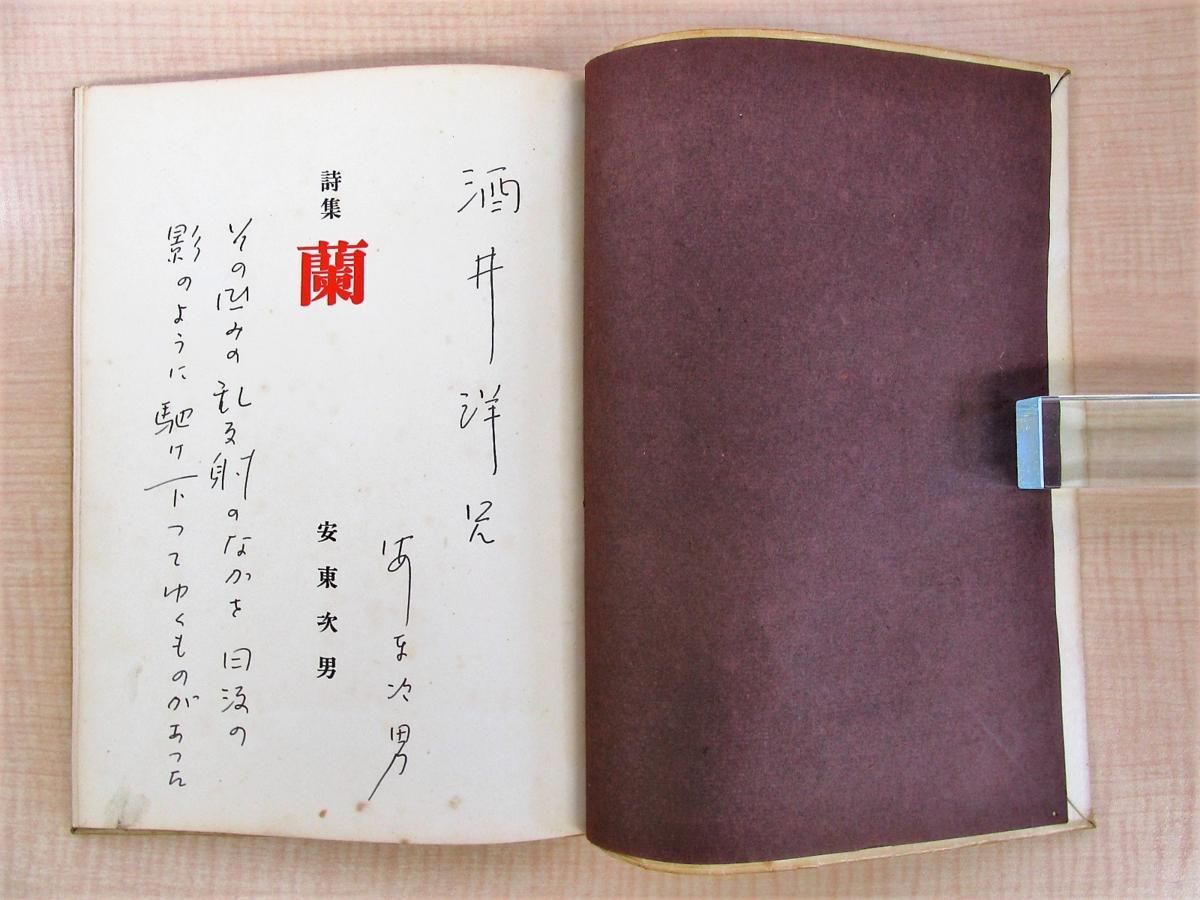 酒井洋兄
安東次男
詩集
蘭
安東次男
その凹みの乱反射のなかを 日没の
影のように馳け下つてゆくものがあつた